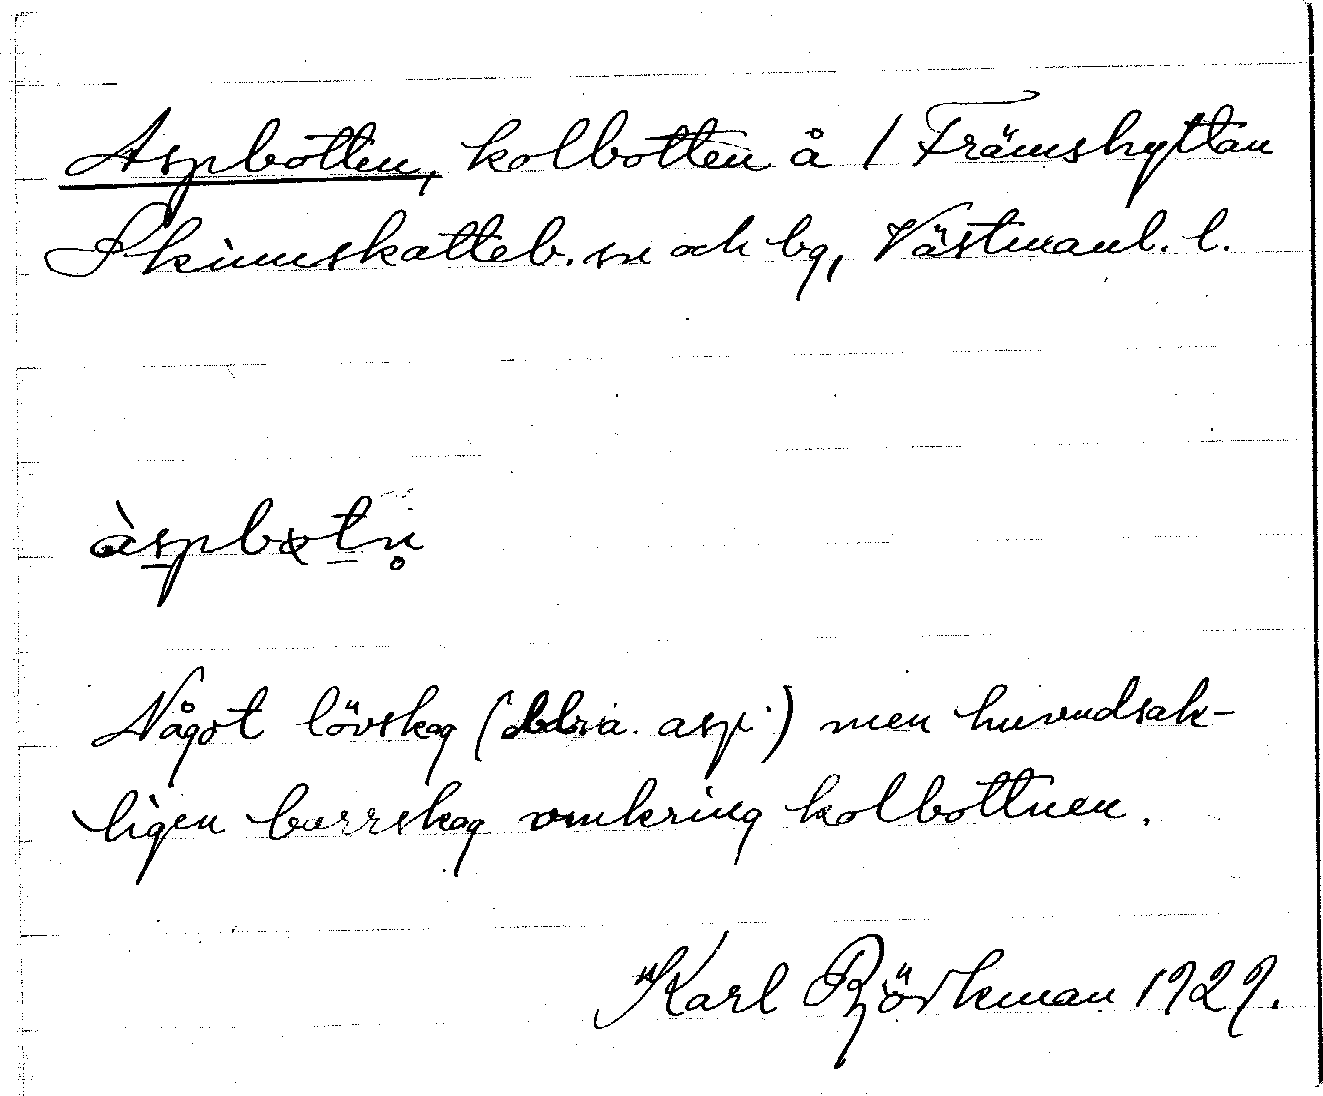 Aspbotten, kolbotten å 1 Främshyttan
Skinnskatteb. sn och bg, Västmanl. l.
àspbotn̥
Något lövskog (bl.a. asp) men huvudsak-
ligen barrskog omkring kolbottnen.
Karl Björkman 1929.